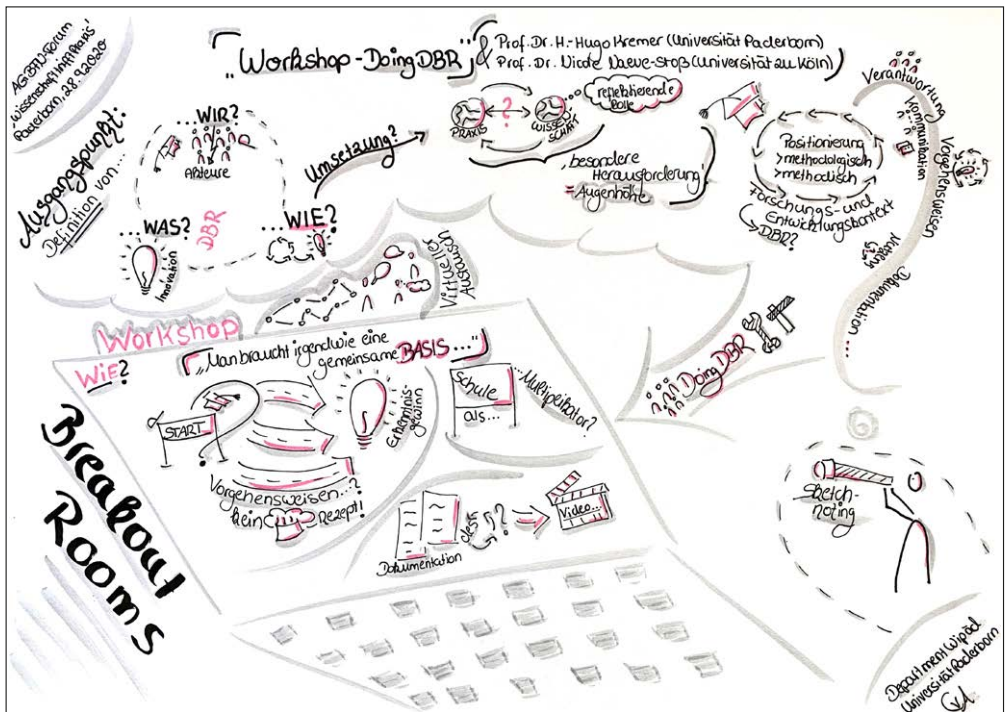 AG BFN-Forum
'Wissenschaft trifft Praxis'
Paderborn, 28.9.2020
"Workshop - Doing DBR"
& Prof. Dr. H.-Hugo Kremer (Universität Paderborn)
Prof. Dr. Nicole Naeve-Stoß (Universität zu Köln)
Ausgangspunkt:
Definition von...
...WIR?
Akteure
...WAS?
Innovation
DBR
...WIE?
Umsetzung?
PRAXIS
?
WISSEN
SCHAFT
reflektierende
Rolle
'besondere
Herausforderung'
= Augenhöhe
Positionierung
> methodologisch
> methodisch
Forschungs- und
Entwicklungskontext
DBR?
Verantwortung
Kommunikation
Vorgehensweisen
Nutzung
Dokumentation
...
Virtueller
Austausch
Workshop
WIE?
"Man braucht irgendwie eine
gemeinsame BASIS..."
START
Erkenntnis-
gewinn
Vorgehensweisen...?
kein Rezept!
Schule
als...
...Multiplikator?
Dokumentation
des
?
Video...
Doing DBR
Breakout
Rooms
Sketch-
noting
Department Wipäd
Universität Paderborn